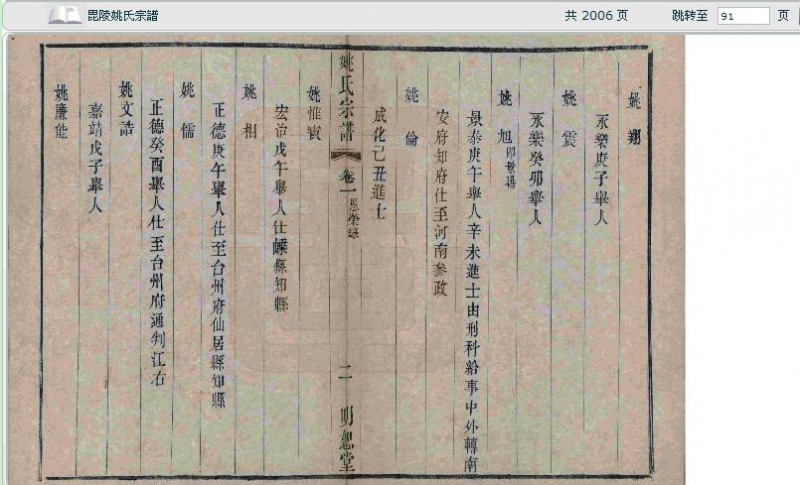 毘陵姚氏宗譜
共 2006 页
跳转至 91 页
姚翔
永樂庚子舉人
姚震
永樂癸卯舉人
姚旭
景泰庚午舉人辛未進士由刑科給事中外轉南
安府知府仕至河南參政
姚倫
成化己丑進士
姚氏宗譜 卷一 恩榮錄 二 明恕堂
姚惟寅
宏治戊午舉人仕嵊縣知縣
姚相
正德庚午舉人仕至台州府仙居縣知縣
姚儒
正德癸酉舉人仕至台州府通判江右
姚文誥
嘉靖戊子舉人
姚慶能